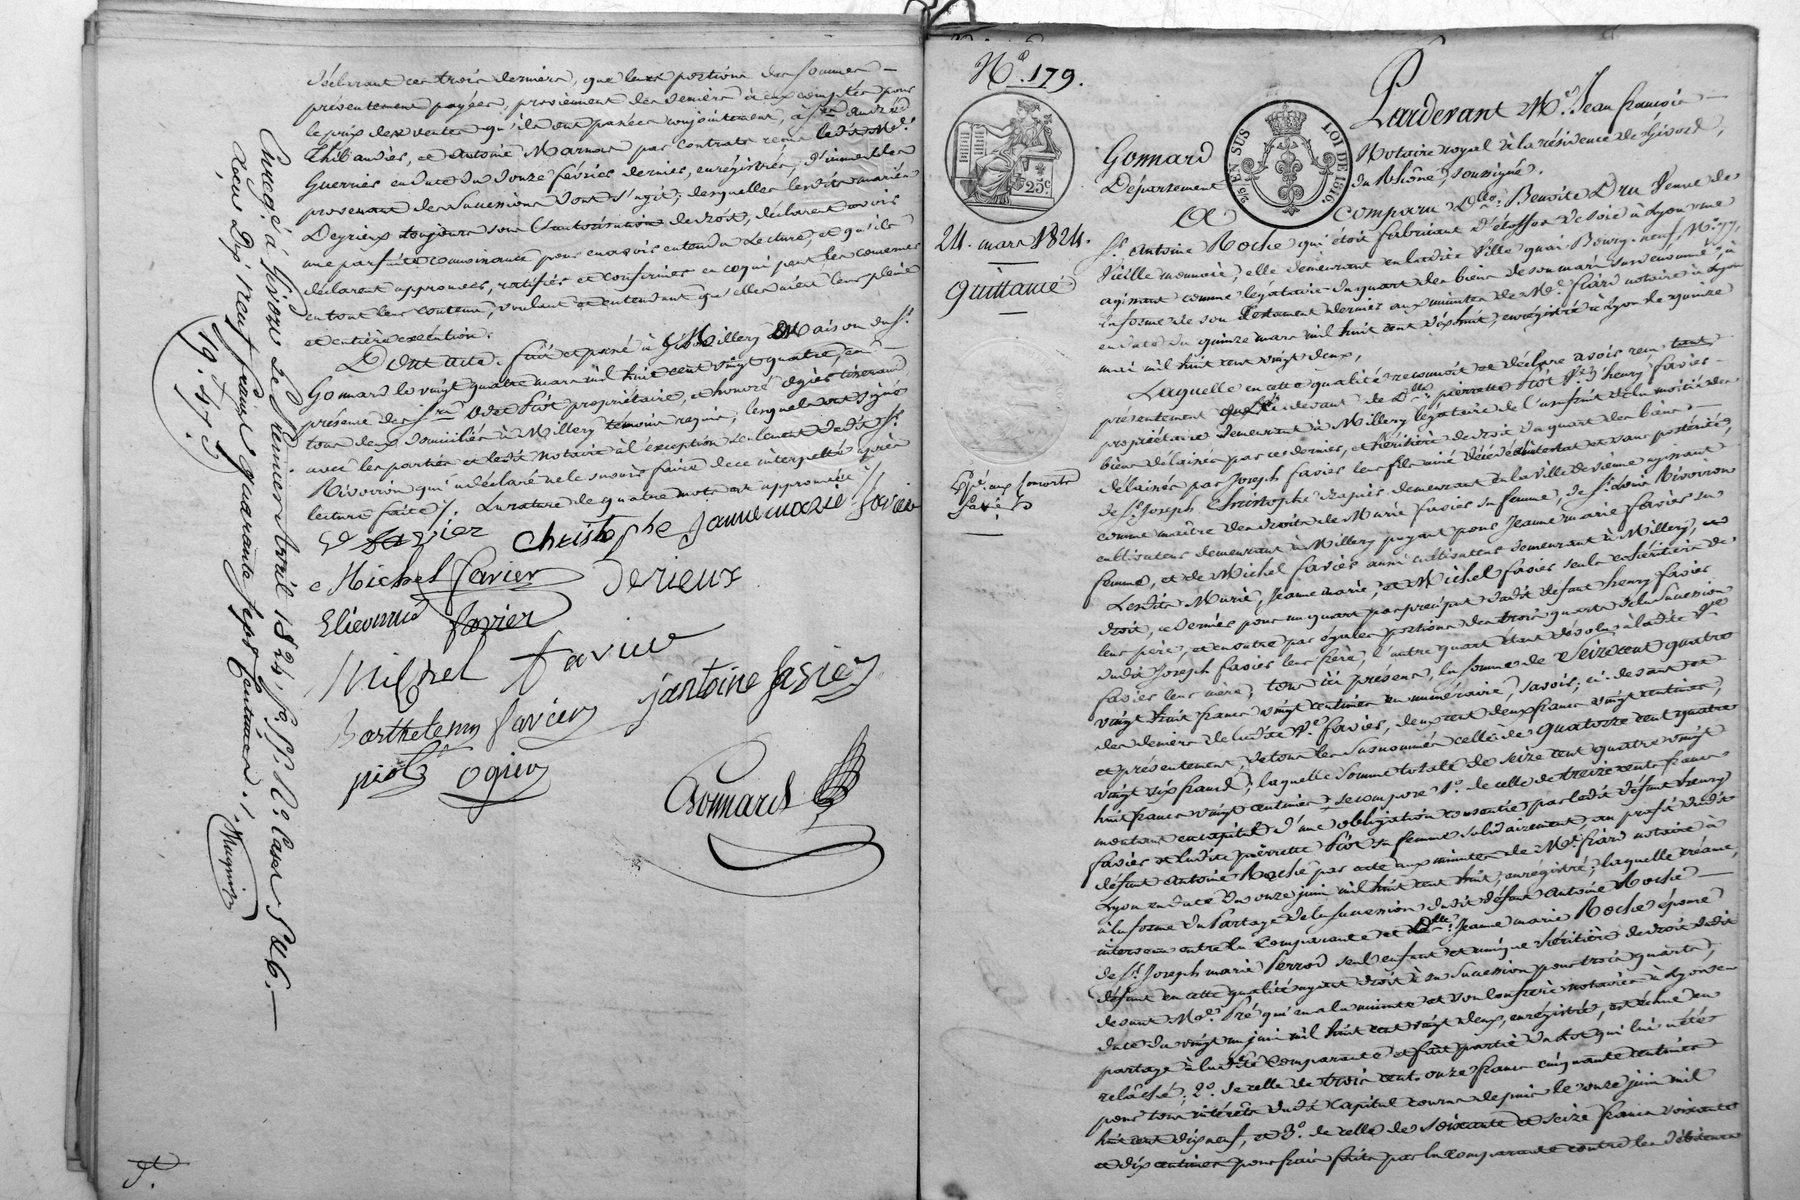 déclarant ces trois derniers, que leurs portions des sommes
présentement payées, proviennent des deniers à eux comptés pour
le prix des ventes qu'ils ont passées conjointement, à Srs André
Thibaudier, et Antoine Marnas par contrats reçus ledit Me
Guerrier en date du douze février dernier, enregistrés, d'immeubles
provenant des successions dont s'agit; desquelles lesdits mariés
Deyrieux toujours sous l'autorisation de droit, déclarent avoir
une parfaite connoissance pour en avoir entendu lecture, et qu'ils
déclarent approuver, ratifier et confirmer en ce qui peut les concerner
en tout leur contenu, voulant et entendant qu'elles aient leur pleine
et entière exécution.
Dont acte. fait et passé à Millery Maison du Sr
Gonnard le vingt quatre mars mil huit cent vingt quatre, en
présence des Srs Piot propriétaire, et honoré ogier tisserand
tous deux domiciliés à Millery témoins requis, lesquels ont signé
avec les parties et ledit notaire à l'exception seulement dudit Sr
Rivoiron qui a déclaré ne le savoir faire de ce interpellé après
lecture faite /. La rature de quatre mots est approuvée /.
Ve favier Christophe Jannemarie favier
Michel favier Derieux
Etiennne favier
Michel favier
Barthelemy favier jantoine favier
piot ogier
Gonnard
Enregé à Givors le Premier Avril 1824. fo
Reçu Dix neuf francs quarante sept centimes./.
19f. 47c.
Magnin
N.o 179.
EN SUS
LOI DE 1816.
25c.
24. mars 1824.
quittance
Expé. aux Consorts
favier
Pardevant Me Jean françois
Gonnard Notaire royal à la résidence de Givors,
Département du Rhône, soussigné.
Comparu Dlle Benoite Dru Veuve de
Sr Antoine Roche qui étoit fabricant d'étoffes de soie à Lyon rue
Vieille monnoie, elle demeurant en ladite Ville quai Bourg-neuf, N.o 77,
agissant comme légataire du quart des biens de son mari susdénommé, à
la forme de son Testament dernier aux minutes de Me fiard notaire à Lyon
en date du quinze mars mil huit cent dix huit, enregistré à Lyon le quinze
mai mil huit cent vingt deux,
Laquelle en cette qualité reconnoit et déclare avoir reçu tant
présentement que ci devant de Dlle pierrette Piot Ve d'henry favier
propriétaire demeurant à Millery légataire de l'usufruit de la moitié des
biens délaissés par ce dernier, et héritière de droit du quart des biens
délaissés par Joseph favier leur fils ainé décédé intestat et sans postérité,
de Sr Joseph Christophe demeurant en la Ville de Vienne agissant
comme maître des droits de Marie favier sa femme, de Sr Louis Rivoiron
cultivateur demeurant à Millery payant pour Jeanne marie favier sa
femme, et de Michel favier aussi cultivateur demeurant à Millery,
Lesdits Marie, Jeanne marie, et Michel favier seuls cohéritiers de
droit, ce dernier pour un quart par préciput dudit défunt henry favier
leur père, et en outre par égales portions des trois quarts de la succession
dudit Joseph favier leur frère, l'autre quart étant dévolu à ladite Ve
favier leur mère, tous ici présens, la somme de Seize cent quatre
vingt huit francs vingt centimes en numéraire, savoir; ci-devant et
des deniers de ladite Ve favier, deux cent deux francs vingt centimes,
et présentement de tous les susnommés celle de quatorze cent quatre
vingt six francs; laquelle somme totale de seize cent quatre vingt
huit francs vingt centimes se compose 1o. de celle de treize cents francs
montant en capital d'une obligation consentie par ledit défunt henry
favier et ladite pierrette Piot sa femme solidairement au profit dudit
défunt Antoine Roche par acte aux minutes de Me fiard notaire à
Lyon en date du onze juin mil huit cent huit, enregistré; laquelle créance,
à la forme du Partage de la succession dudit défunt Antoine Roche
intervenu entre la comparante et Dlle Jeanne marie Roche épouse
de Sr Joseph marie Perrod seul enfant et unique héritière de droit dudit
défunt en cette qualité ayant droit à sa succession pour trois quarts,
devant Me Pré qui en a la minute et son confrère notaires à Lyon en
date du vingt un juin mil huit cent vingt deux, enregistré, est échue en
partage à ladite comparante et fait partie du lot qui lui a été
relâché; 2o. de celle de trois cents onze francs cinquante centimes
pour tous intérêts dudit capital courus depuis le onze juin mil
huit cent dix neuf, et 3o. de celle de soixante et seize francs soixante
et dix centimes pour frais faits par la comparante contre les débiteurs